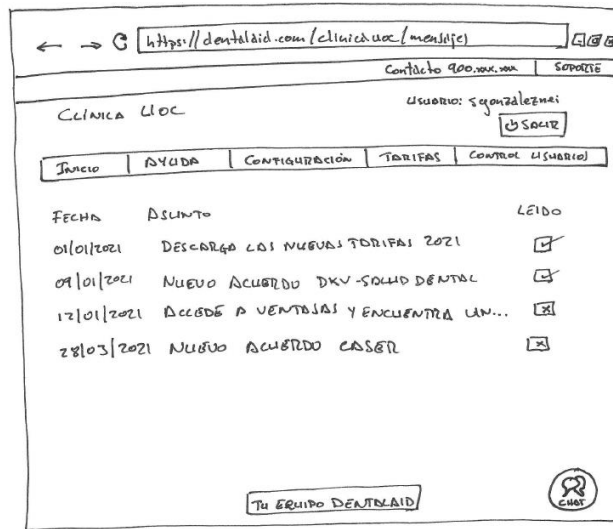 https://dentalaid.com/clinicauoc/mensajes
Contacto 900.xxx.xxx SOPORTE
CLÍNICA UOC
USUARIO: sgonzaleznei
SALIR
INICIO AYUDA CONFIGURACIÓN TARIFAS CONTROL USUARIOS
FECHA ASUNTO LEIDO
01/01/2021 DESCARGA LAS NUEVAS TARIFAS 2021
09/01/2021 NUEVO ACUERDO DKV-SALUD DENTAL
12/01/2021 ACCEDE A VENTAJAS Y ENCUENTRA UN...
28/03/2021 NUEVO ACUERDO CASER
TU EQUIPO DENTALAID
CHAT